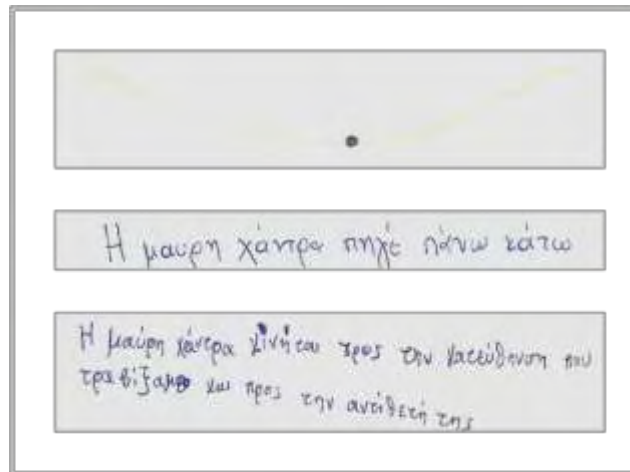 Η μαυρη χάντρα πηχέ πάνω κάτω
Η μαύρη χάντρα κινήται προς την κατεύθηνση που
τραβίξαμε και προς την αντίθετή της